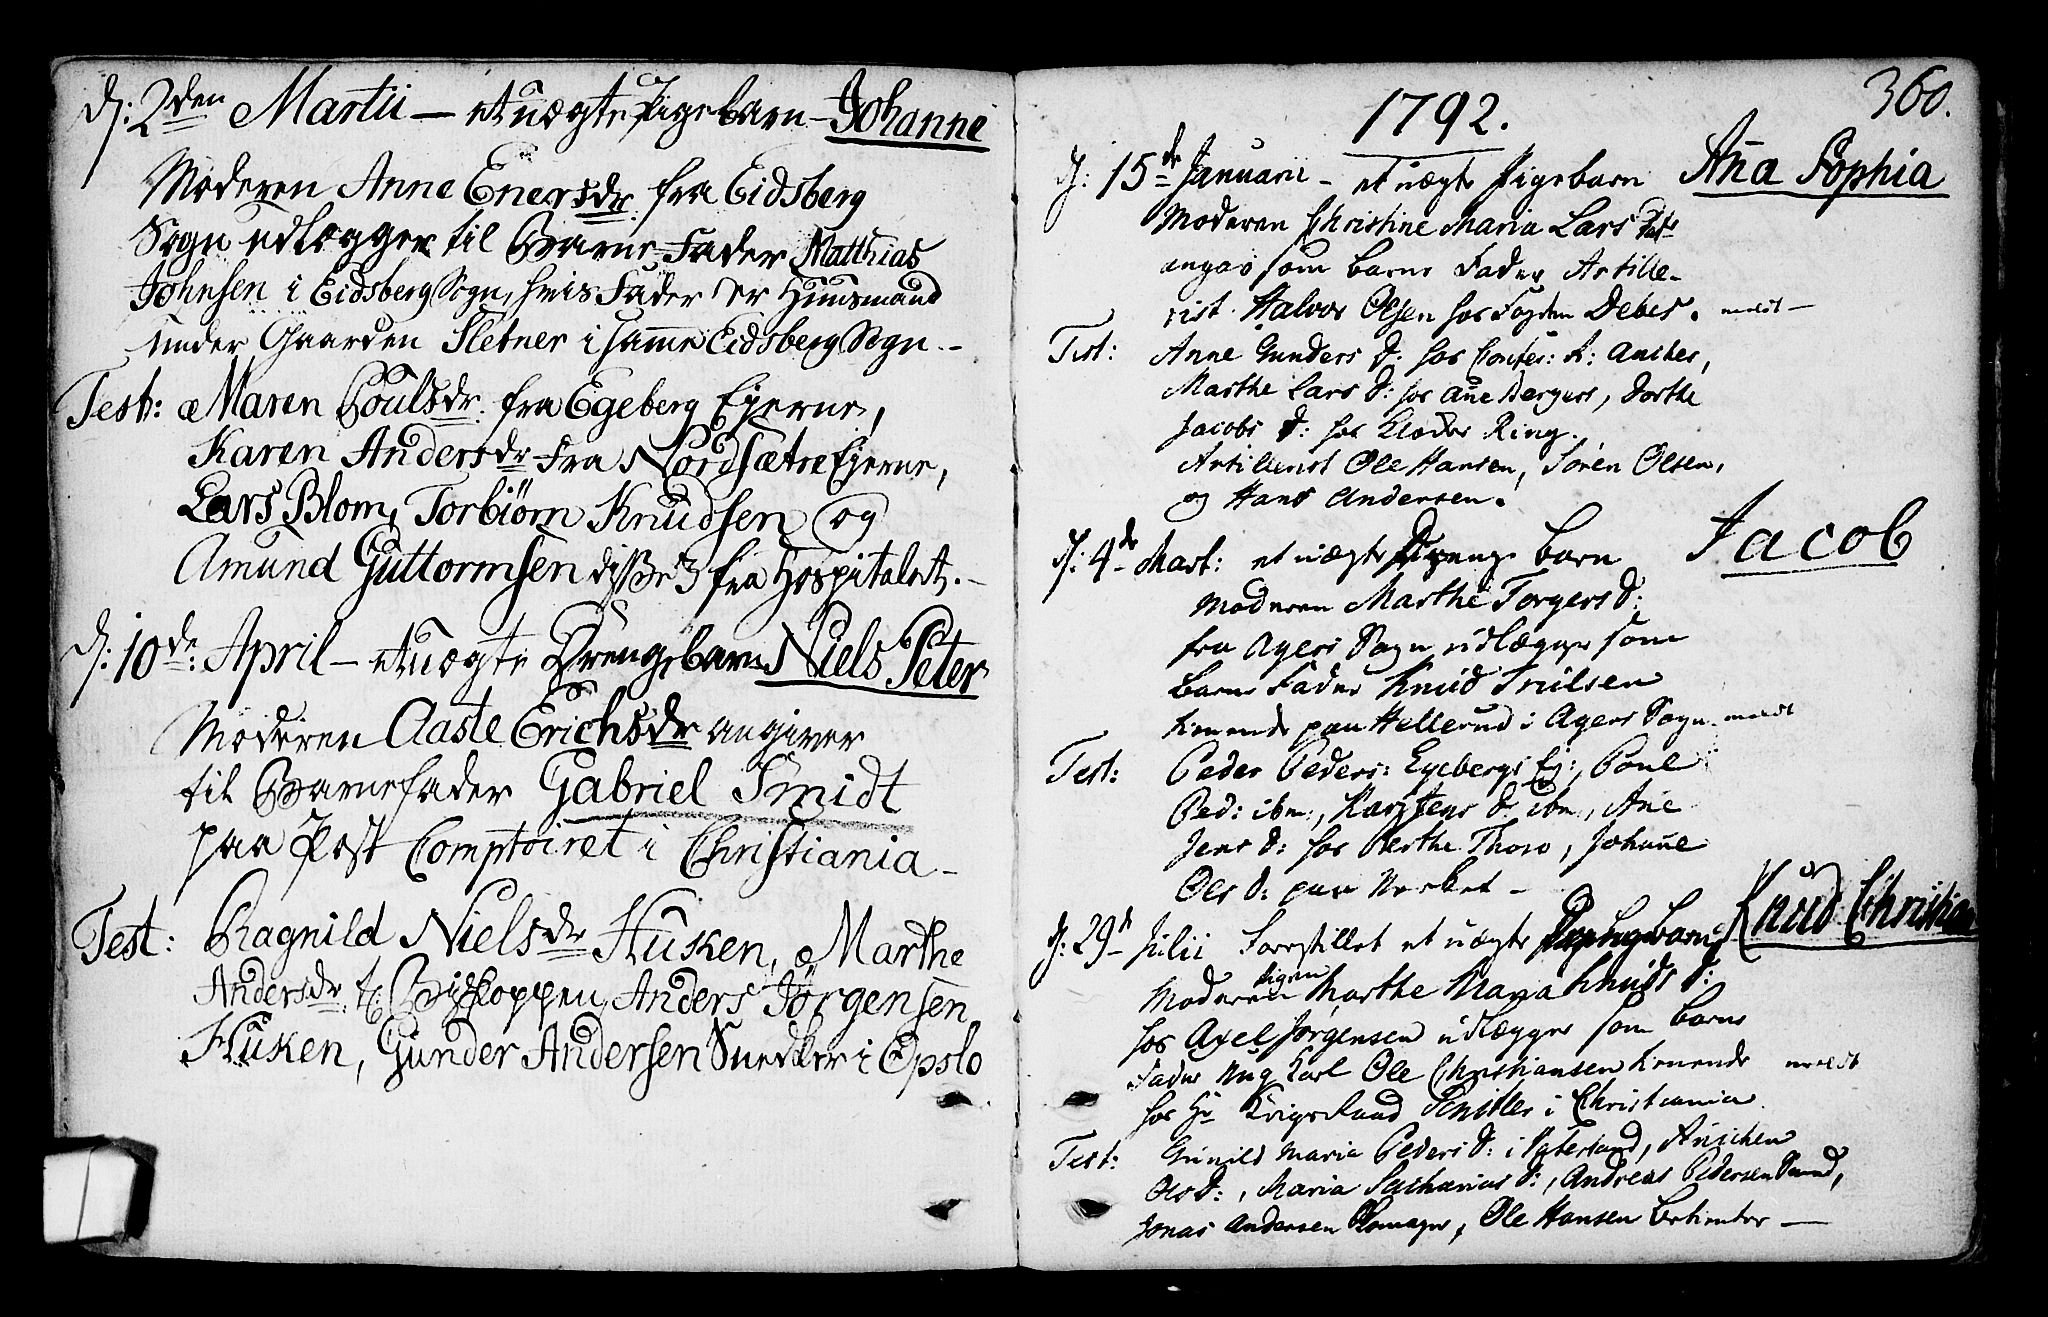 D: 2den Martii — et uægte Pigebarn — Johanne
Moderen Anne Enersdr. fra Eidsberg
Sogn udlægger til Barne-Fader Matthias
Johnsen i Eidsberg Sogn, hvis Fader er Huusmand
under Gaarden Sletner i samme Eidsberg Sogn. —
Test: Maren Poulsdr. fra Egeberg Ejerne,
Karen Andersdr fra Nordsætre Ejerne,
Lars Blom, Torbiørn Knudsen og
Amund Guttormsen disse 3 fra Hospitalet. —
D: 10de: April — et uægte Drengebarn Niels Peter
Moderen Aaste Erichsdr angiver
til Barnefader Gabriel Smidt
paa Post Comptoiret i Christiania —
Test: Ragnild Nielsdr Husken, Marthe
Andersdr. t. Biskoppen, Anders Jørgensen
Husken, Gunder Andersen Snedker i Opslo
360.
1792.
D: 15de Januarii — et uægte Pigebarn Aña Sophia
Moderen Christine Maria Lars Datr
angav som barne Fader Artille-
rist Halvor Olsen hos Fogden Debes. meldt —
Test: Anne Gunders D. hos A: Ancher,
Marthe Lars D: hos Añe Bergers, Dorthe
Jacobs D: hos Ring.
Artillerist Ole Hansen, Søren Olsen,
og Hans Andersen.
D: 4de Mart: et uægte Drenge barn Jacob
Moderen Marthe Torgers D:
fra Agers Sogn udlægger som
barne Fader Knud Trulsen
tienende paa Hellerud i Agers Sogn. meldt
Test: Peder Peders: Egebergs Ej:, Poul
Ped: ibm:, Karstens D. ibm., Añe
Jens D: hos Berthe Thoro, Johañe
Ols D: paa Verket —
D: 29d Julii Forestillet et uægte Drengebarn Knud Christian
Moderen Pigen Marthe Maria Knuds D:
hos Axel Jørgensen udlægger som barne
Fader Ung Karl Ole Christiansen tienende meldt
hos Hr Krigsraad i Christiania.
Test: Gunild Maria Peders D: i Vaterland, Anichen
Ols D:, Maria Sacharias D:, Andreas Pedersen Sund,
Jonas Andersen, Ole Hansen betienter —